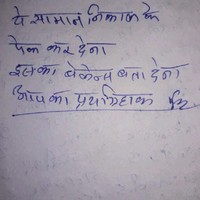 ये सामान निकाल के
पेक कर देना
इसका बेलेन्स बता देना
आपका